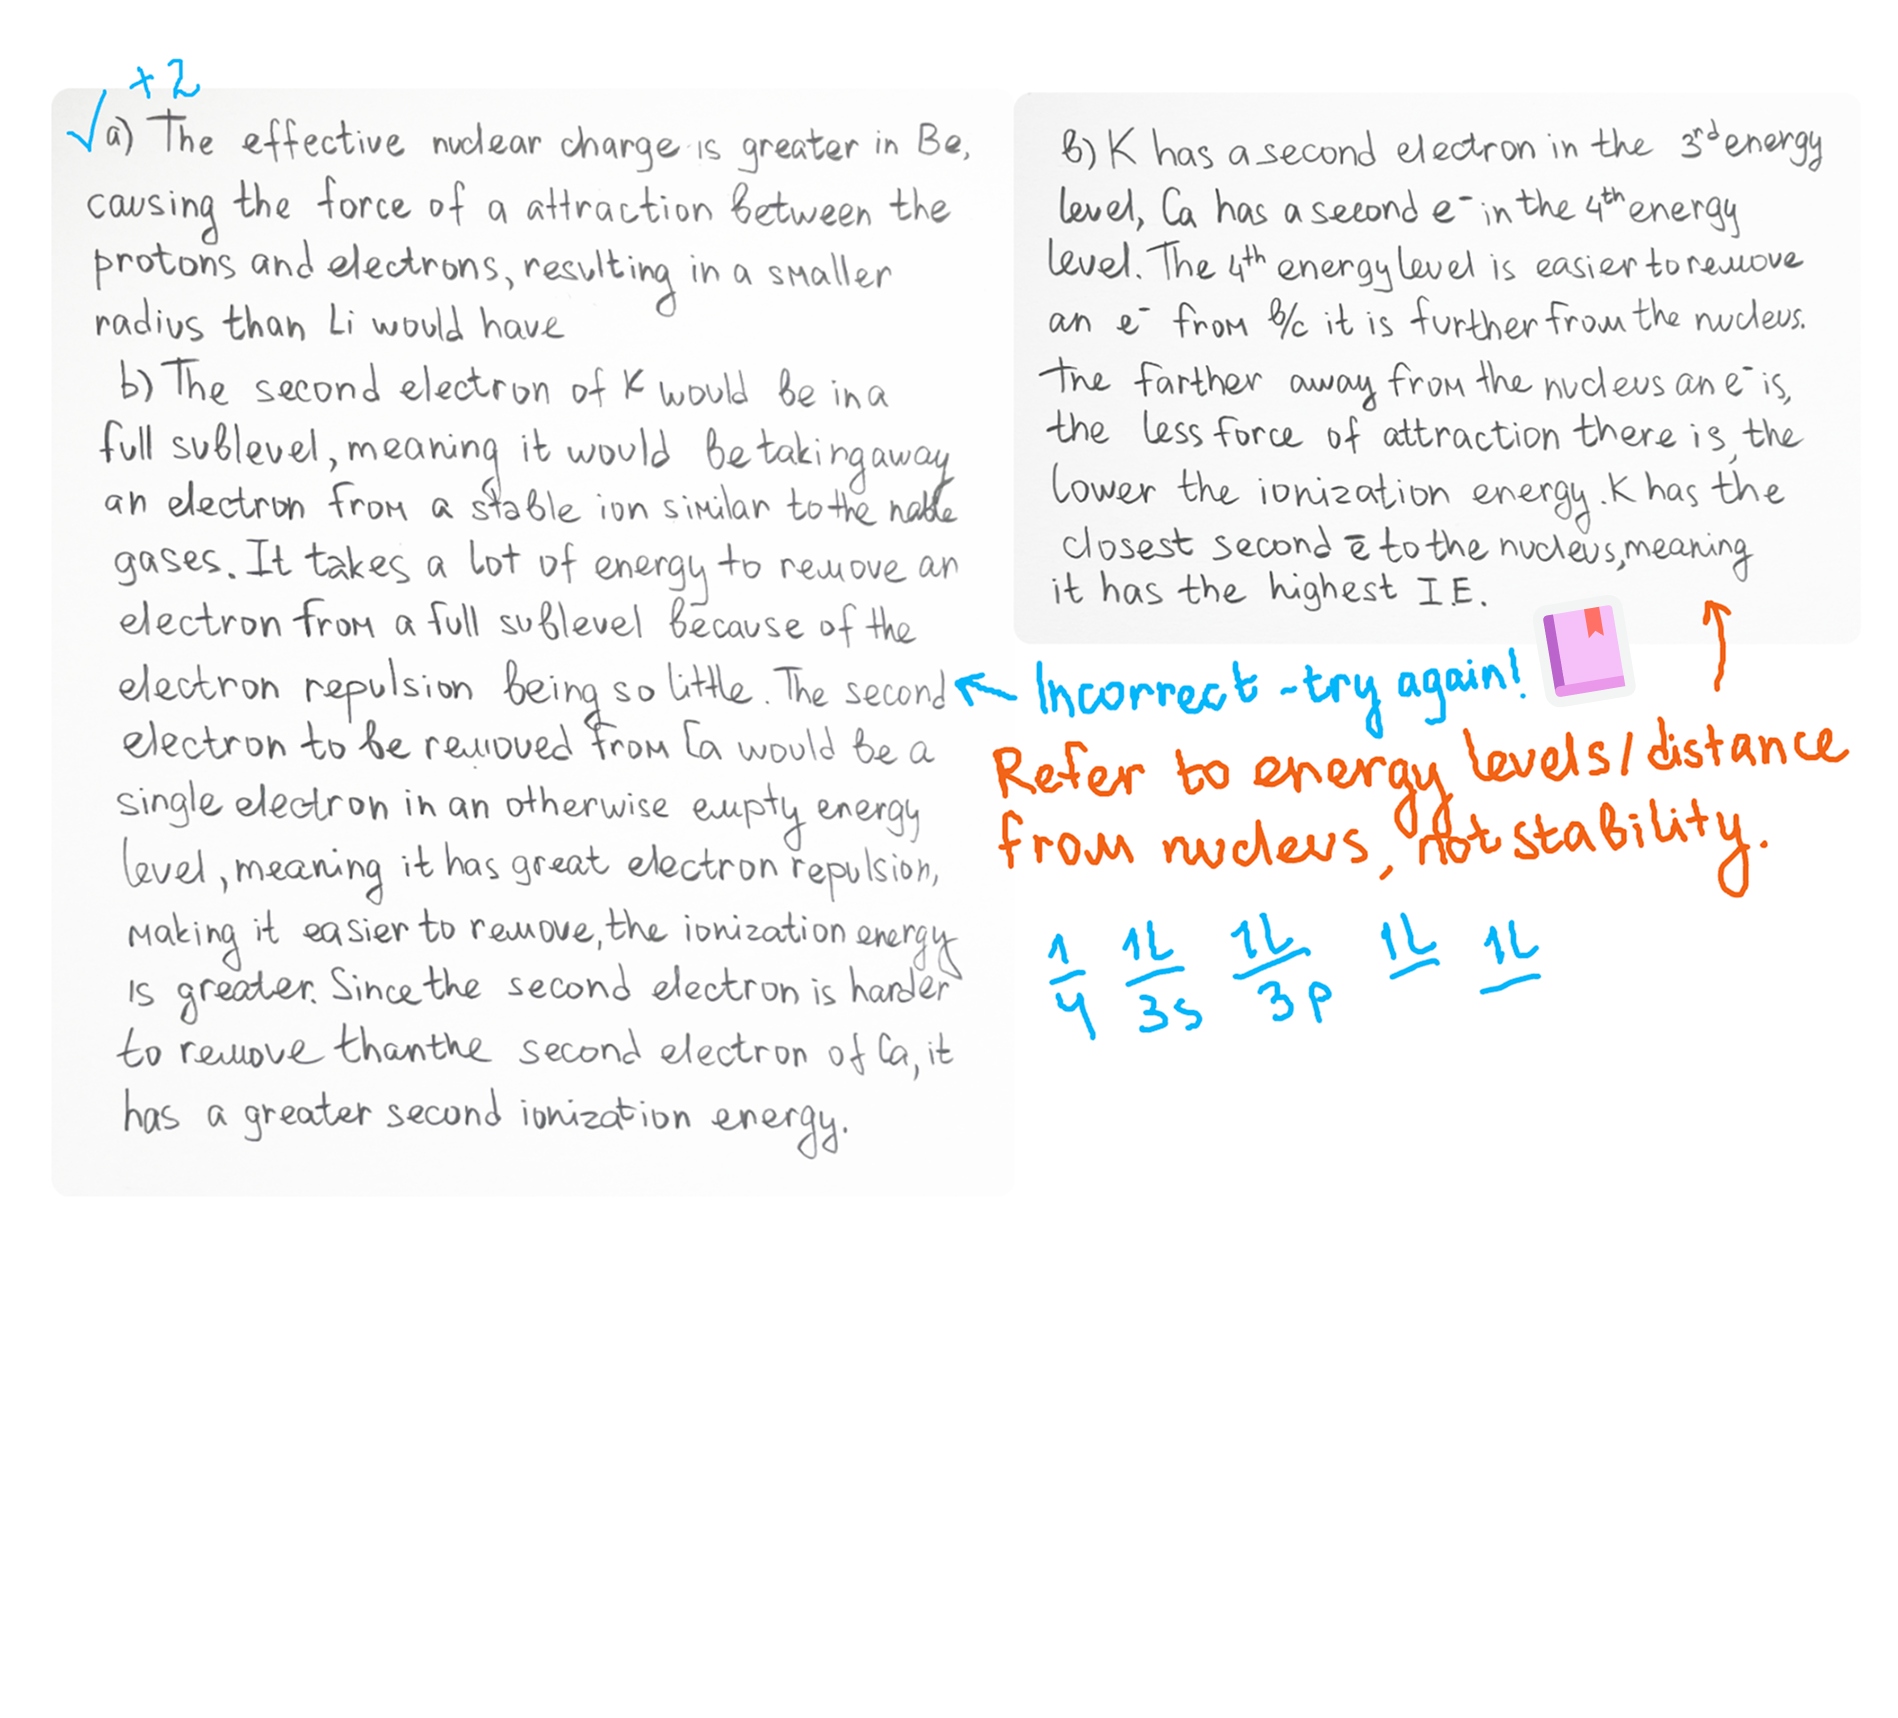 +2
√ a) The effective nuclear charge is greater in Be,
causing the force of a attraction between the
protons and electrons, resulting in a smaller
radius than Li would have
b) The second electron of K would be in a
full sublevel, meaning it would be taking away
an electron from a stable ion similar to the noble
gases. It takes a lot of energy to remove an
electron from a full sublevel because of the
electron repulsion being so little. The second
electron to be removed from Ca would be a
single electron in an otherwise empty energy
level, meaning it has great electron repulsion,
making it easier to remove, the ionization energy
is greater. Since the second electron is harder
to remove than the second electron of Ca, it
has a greater second ionization energy.
b) K has a second electron in the 3rd energy
level, Ca has a second e⁻ in the 4th energy
level. The 4th energy level is easier to remove
an e⁻ from b/c it is further from the nucleus.
The farther away from the nucleus an e⁻ is,
the less force of attraction there is, the
lower the ionization energy. K has the
closest second e̅ to the nucleus, meaning
it has the highest I.E.
← Incorrect - try again!
Refer to energy levels/distance
from nucleus, not stability.
1 1L 1L 1L 1L
4 3s 3p